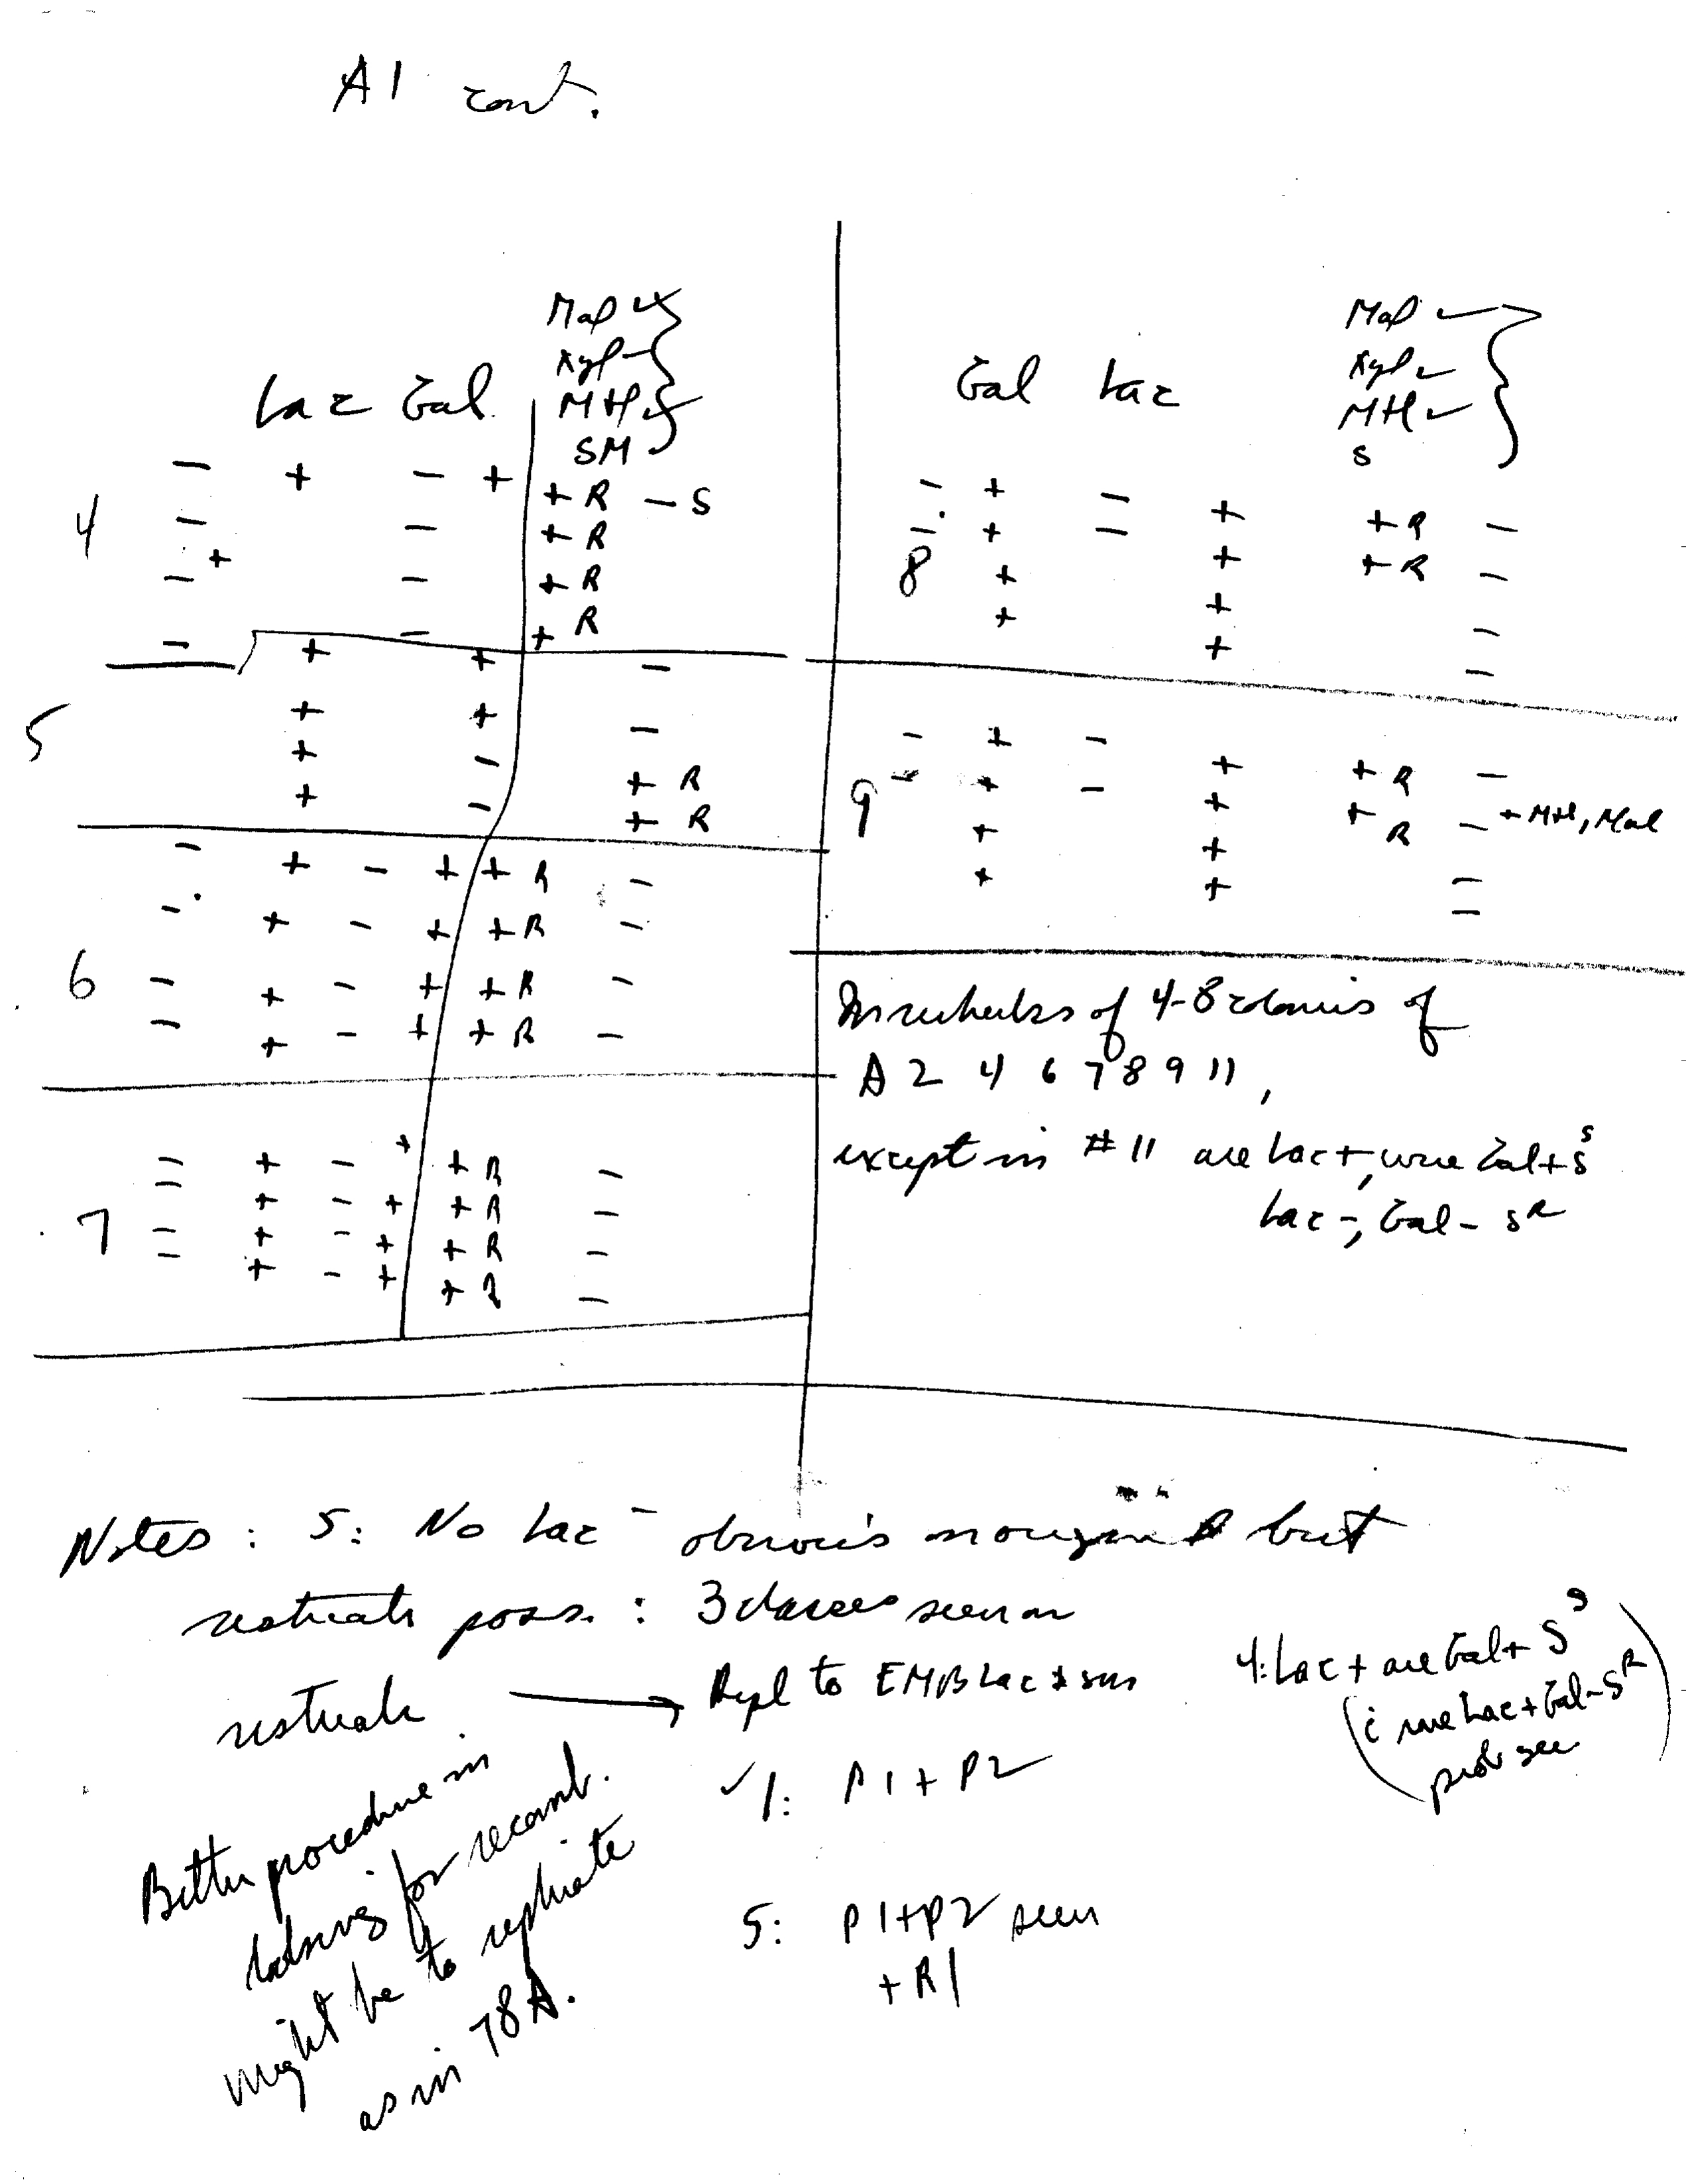 A1 cont.
Mal
Xyl
MHl
SM
Lac Gal
4
- + - + + R - S
- - + R
+
- - + R
- - + R
5
+ + -
+ + -
+ - + R
+ - + R
6
- + - + + R -
- + - + + R -
- + - + + R -
- + - + + R -
7
- + - + + R -
- + - + + R -
- + - + + R -
- + - + + R -
Mal
Xyl
MHl
S
Gal Lac
8
- + - + + R -
- + - + + R -
+ + -
+ + -
9
- + - + + R -
- + - + + R - + MHl, Mal
+ + -
+ + -
of 4-8 colonies of
A 2 4 6 7 8 9 11,
except in # 11 are Lac+, were Gal+ S^s
Lac-, Gal- S^R
Notes: 5: No Lac- obvious but
restreak poss.: 3 classes seen on
restreak → Repl to EMB Lac
4: Lac+ are Gal+ S^s
(Lac+ Gal- S^R
prob
✓1: P1+P2
5: P1+P2 seen
+ R1
Better procedure in
looking for recomb.
might be to replicate
as in 78A.